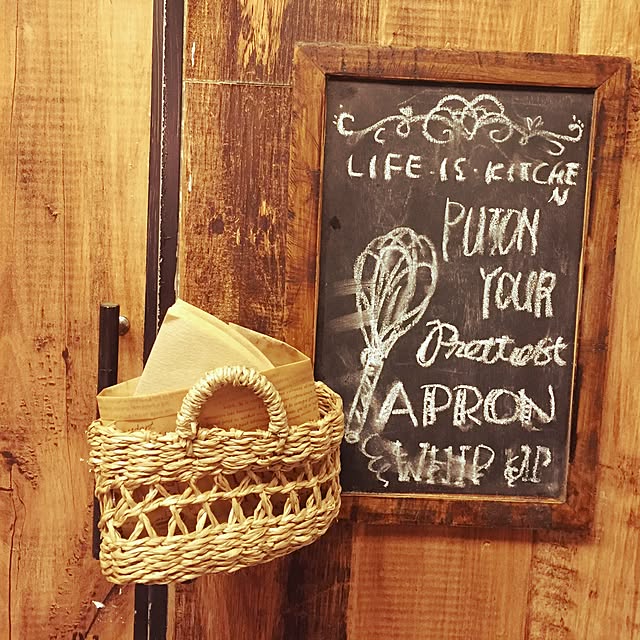 LIFE · IS · KITCHEN
PUT ON
YOUR
Prettiest
APRON
& WHIP UP